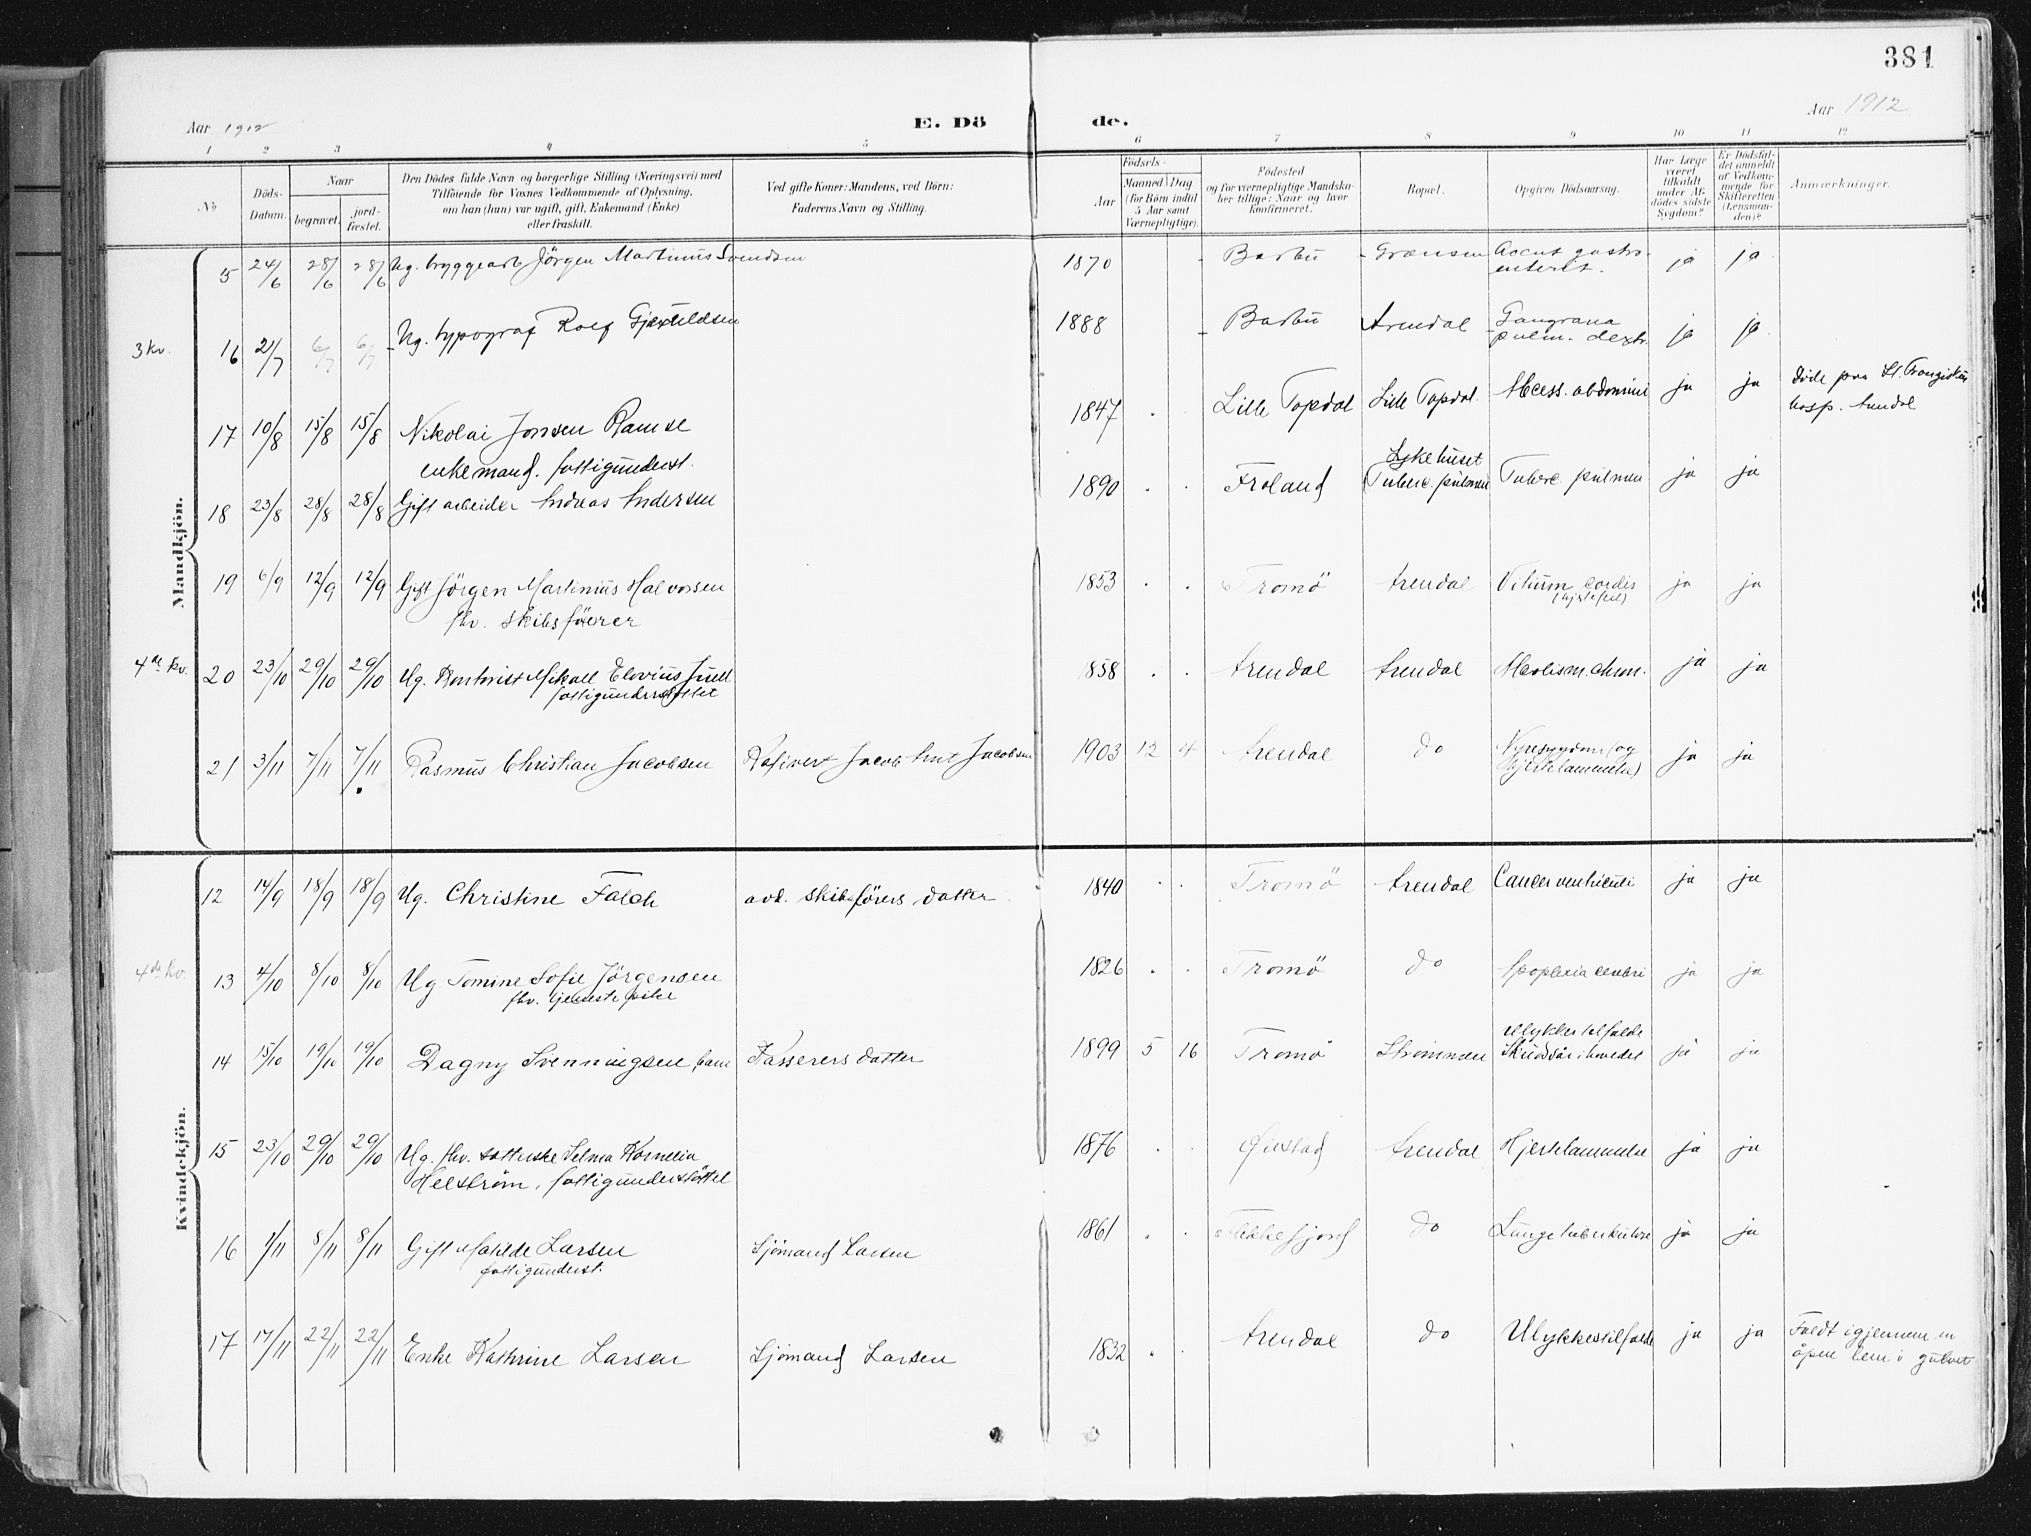 381
Aar 1912
E. Dö
de.
Aar 1912
1 2 3 4 5 6 7 8 9 10 11 12
№
Döds-
Datum.
Naar
begravet.
jord-
fæstet.
Den Dödes fulde Navn og borgerlige Stilling (Næringsvei) med
Tilföiende for Voxnes Vedkommende af Oplysning,
om han (hun) var ugift, gift, Enkemand (Enke)
eller fraskilt.
Ved gifte Koner: Mandens, ved Börn:
Faderens Navn og Stilling.
Födsels-
Aar
Maaned
Dag
(for Börn indtil
5 Aar samt
Værnepligtige).
Födested
og for værnepligtige Mandska-
ber tillige: Naar og hvor
konfirmeret.
Bopæl.
Opgiven Dödsaarsag.
Har Læge
været
tilkaldt
under Af-
dödes sidste
Sygdom?
Er Dödsfal-
det anmeldt
af Vedkom-
mende for
Skifteretten
(Lensman-
den)?
Anmærkninger.
Mandkjön.
5 24/6 28/6 28/6 Ug. bryggearb Jörgen Martinius Svendsen 1870 Barbu Grænsen
enterit. ja ja
3 kv. 16 2/7 6/7 6/7 Ug. typograf Rolf 1888 Barbu Arendal Gangræna
pulm. dextr. ja ja
17 10/8 15/8 15/8 Nikolai Jonsen Ramse 1847 Lille Topdal Lille Topdal Abcess. abdomini ja ja Döde paa St. Franziskus
enkemand. fattigunderst.
hosp. Arendal
18 23/8 28/8 28/8 Gift arbeider Andreas Andersen 1890 Froland Sykehuset
(Tuberc. pulmon) Tuberc. pulmon ja ja
19 6/9 12/9 12/9 Gift Jörgen Martinius Halvorsen 1853 Tromö Arendal Vitium cordis ja ja
fhv. Skibsförer
(hjertefeil)
4de kv. 20 23/10 29/10 29/10 Ug. Kontorist Mikael Juell 1858 Arendal Arendal ja ja
fattigunderstöttet
21 3/11 7/11 7/11 Rasmus Christian Jacobsen Jacob Jacobsen 1903 12 4 Arendal do Nyresygdom (og
Hjertelammelse) ja ja
Kvindekjön.
12 14/9 18/9 18/9 Ug. Christine Falch avd. skibsförers datter 1840 Tromö Arendal Cancer ventriculi ja ja
4de kv. 13 4/10 8/10 8/10 Ug Tomine Sofie Jörgensen 1826 Tromö do Apoplexia cerebri ja ja
fhv. tjenestepike
14 15/10 19/10 19/10 Dagny Svenningsen, barn Kasserers datter 1899 5 16 Tromö Strömmen Ulykkestilfælde
Skudsår i hovedet ja ja
15 23/10 29/10 29/10 Ug. fhv. Selma Kornelia 1876 Öiestad Arendal Hjertelammelse ja ja
Helström, fattigunderstöttet
16 1/11 8/11 8/11 Gift Matilde Larsen Sjömand Larsen 1861 Flekkefjord do Lungetuberkulose ja ja
fattigunderst.
17 17/11 22/11 22/11 Enke Kathrine Larsen Sjömand Larsen 1832 Arendal do Ulykkestilfælde ja ja Faldt igjennem en
åpen lem i gulvet